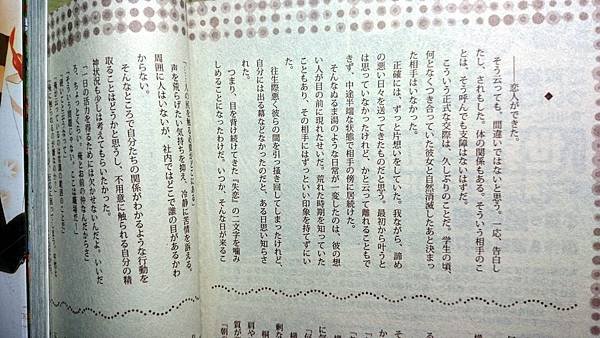 ――恋人ができた。
そう云っても、間違いではないと思う。一応、告白し
たし、されもした。体の関係もある。そういう相手のこ
とは、そう呼んでも支障はないはずだ。
こういう正式な交際は、久しぶりのことだ。学生の頃、
何となくつき合っていた彼女と自然消滅したあと決まっ
た相手はいなかった。
正確には、ずっと片想いをしていた。我ながら、諦め
の悪い日々を送ってきたものだと思う。最初から叶うと
は思っていなかったけれど、かと云って離れることもで
きず、中途半端な状態で相手の傍に居続けた。
そんなぬるま湯のような日常が一変したのは、彼の想
い人が目の前に現れたせいだ。荒れた時期を知っていた
こともあり、その相手にはずっといい印象を持てずにい
た。
往生際悪く彼らの間を引っ掻き回してしまったけれど、
自分には出る幕などなかったのだと、ある日思い知らさ
れた。
つまり、目を背け続けてきた「失恋」の二文字を噛み
しめることになったわけだ。いつか、そんな日が来るこ
声を荒らげたい気持ちを抑え、冷静に苦情を訴える。
周囲に人はいないが、社内ではどこで誰の目があるかわ
からない。
そんなところで自分たちの関係がわかるような行動を
取ることはどうかと思うし、不用意に触れられる自分の精
神状況も少しは考えてもらいたかった。
「一日の活力を得るためには欠かせないんだよ。いいだ
ろ、ちょっとくらい。俺とお前の仲なんだからさ」